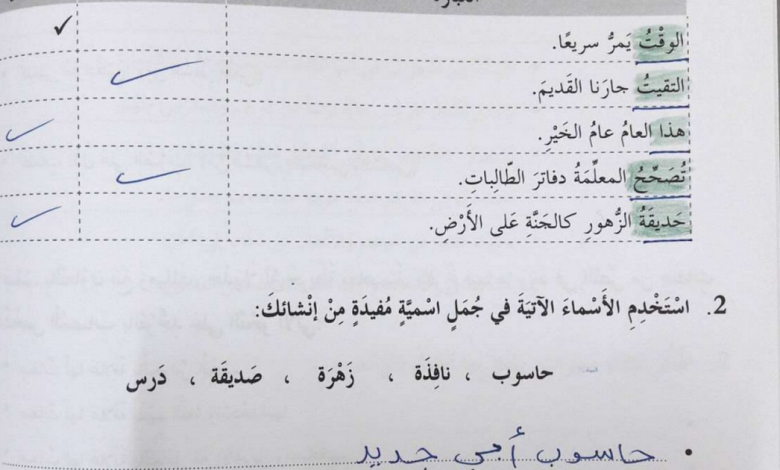 الوقْتُ يَمرُّ سريعًا.
التقيتُ جارَنا القَديمَ.
هذا العامُ عامُ الخَيْرِ.
تُصَحِّحُ المعلِّمَةُ دفاترَ الطّالِباتِ.
حَديقَةُ الزُّهورِ كالجَنَّةِ عَلى الأَرْضِ.
2. اسْتَخْدِمِ الأسْماءَ الآتيَةَ في جُمَلٍ اسْميَّةٍ مُفيدَةٍ مِنْ إنْشائكَ:
حاسوب ، نافِذَة ، زَهْرَة ، صَديقَة ، دَرس
• حاسوب أبي جديد